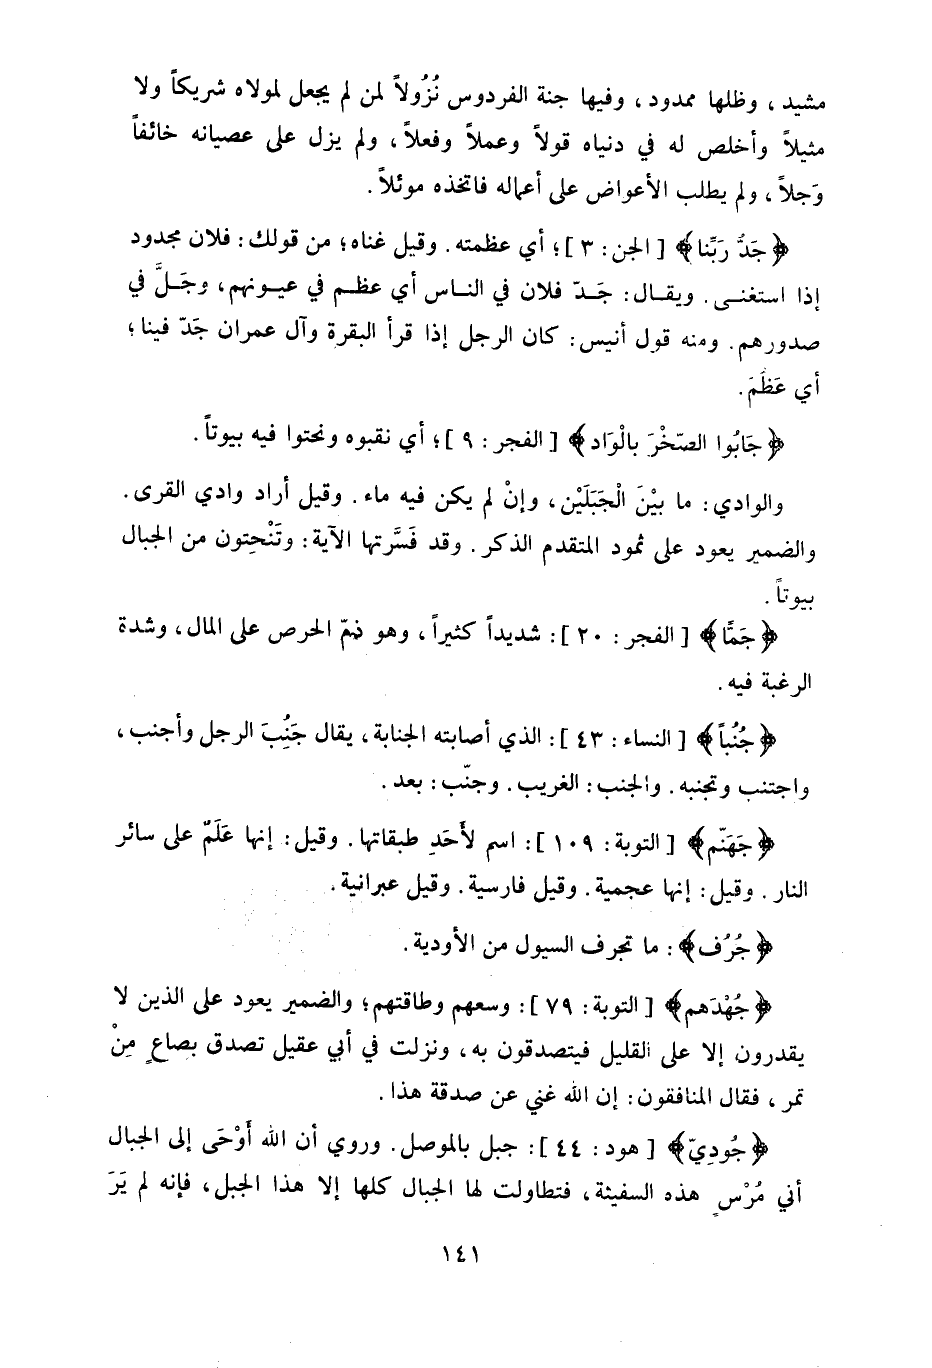 مشيد، وظلها ممدود، وفيها جنة الفردوس نُزُولاً لمن لم يجعل لمولاه شريكاً ولا
مثيلاً وأخلص له في دنياه قولاً وعملاً وفعلاً، ولم يزل على عصيانه خائفاً
وَجلاً، ولم يطلب الأعواض على أعماله فاتخذه موئلاً.
﴿جَدُّ رَبِّنا﴾ [الجن: ٣]؛ أي عظمته. وقيل غناه؛ من قولك: فلان مجدود
إذا استغنى. ويقال: جَدّ فلان في الناس أي عظم في عيونهم، وجَلَّ في
صدورهم. ومنه قول أنيس: كان الرجل إذا قرأ البقرة وآل عمران جَدّ فينا؛
أي عَظَمَ.
﴿جَابُوا الصّخْرَ بالْوَاد﴾ [الفجر: ٩]؛ أي نقبوه ونحتوا فيه بيوتاً.
والوادي: ما بيْنَ الْجَبَلَيْن، وإنْ لم يكن فيه ماء. وقيل أراد وادي القرى.
والضمير يعود على ثمود المتقدم الذكر. وقد فَسَّرتها الآية: وتَنْحِتون من الجبال
بيوتاً.
﴿جَمًّا﴾ [الفجر: ٢٠]: شديداً كثيراً، وهو ذمّ الحرص على المال، وشدة
الرغبة فيه.
﴿جُنُباً﴾ [النساء: ٤٣]: الذي أصابته الجنابة، يقال جَنُبَ الرجل وأجنب،
واجتنب وتجنبه. والجنب: الغريب. وجنّب: بعد.
﴿جَهَنّم﴾ [التوبة: ١٠٩]: اسم لأَحَدِ طبقاتها. وقيل: إنها عَلَمٌ على سائر
النار. وقيل: إنها عجمية. وقيل فارسية. وقيل عبرانية.
﴿جُرُف﴾: ما تجرف السيول من الأودية.
﴿جُهْدَهم﴾ [التوبة: ٧٩]: وسعهم وطاقتهم؛ والضمير يعود على الذين لا
يقدرون إلا على القليل فيتصدقون به، ونزلت في أبي عقيل تصدق بصاعٍ مِنْ
تمر، فقال المنافقون: إن الله غني عن صدقة هذا.
﴿جُودِيّ﴾ [هود: ٤٤]: جبل بالموصل. وروي أن الله أَوْحَى إلى الجبال
أني مُرْسٍ هذه السفينة، فتطاولت لها الجبال كلها إلا هذا الجبل، فإنه لم يَرَ
١٤١